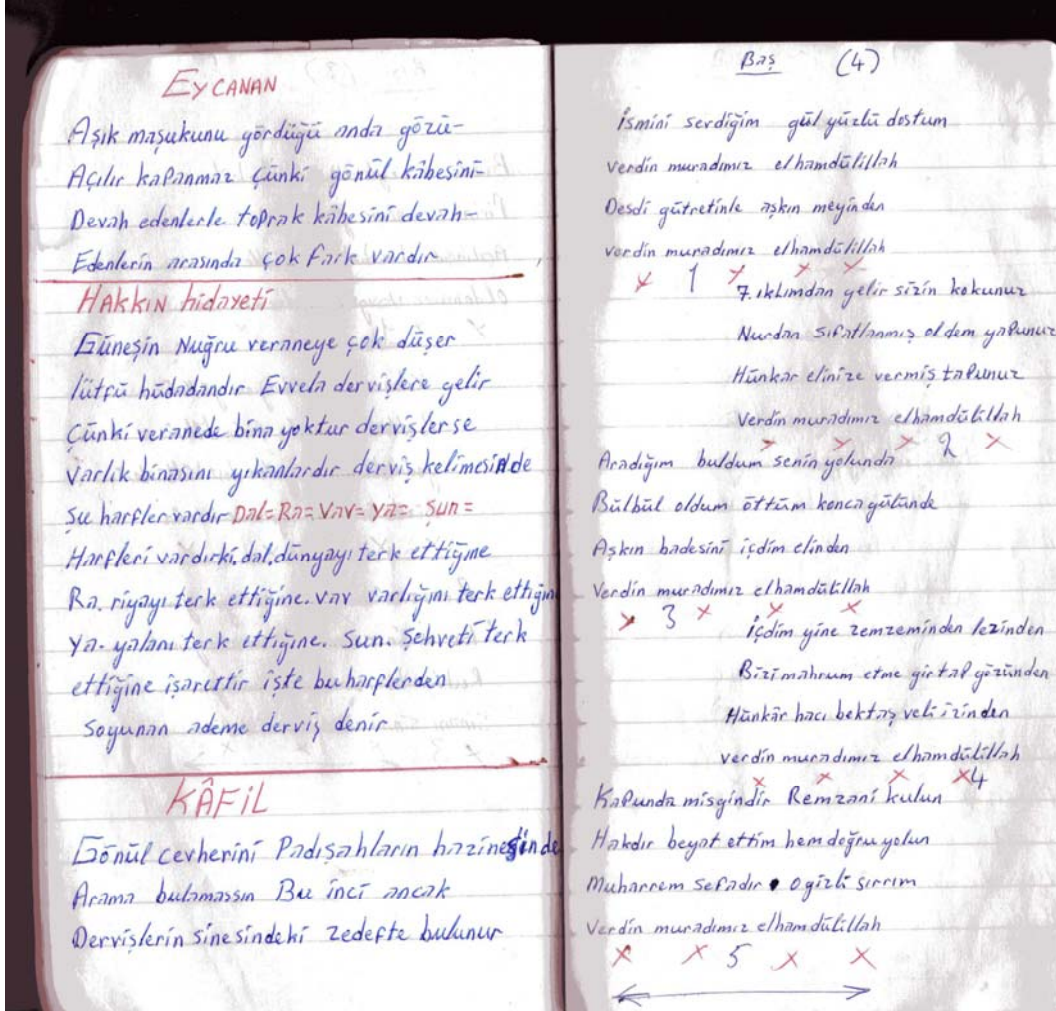 EY CANAN
Aşık maşukunu gördüğü anda gözü-
Açılır kapanmaz Çünki gönül kâbesini-
Devah edenlerle toprak kâbesini devah-
Edenlerin arasında çok fark vardır
HAKKIN hidayeti
Güneşin Nuğru veraneye çok düşer
lütfü hüdadandır Evvela dervişlere gelir
Çünki veranede bina yoktur dervişlerse
Varlık binasını yıkanlardır derviş kelimesinde
Şu harfler vardır Dal= Ra= Vav= Ya= Şun=
Harfleri vardırki. dal. dünyayı terk ettiğine
Ra. riyayı terk ettiğine. vav varlığını terk ettiğine
Ya- yalanı terk ettiğine. Sun. Şehveti terk
ettiğine işarettir işte bu harflerden
Soyunan ademe derviş denir
KÂFİL
Gönül cevherini Padışahların hazinesinde
Arama bulamassın Bu inci ancak
Dervişlerin sinesindeki zedefte bulunur
Baş (4)
İsmini serdiğim gül yüzlü dostum
verdin muradımız elhamdülillah
Desdi gütretinle aşkın meyinden
verdin muradımız elhamdülillah
x 1 x x x
7. iklımdan gelir sizin kokunuz
Nurdan sıfatlanmış oldem yapunuz
Hünkar elinize vermiş tapunuz
Verdin muradımız elhamdülillah
x x x 2 x
Aradığım buldum senin yolunda
Bülbül oldum öttüm konca gülünde
Aşkın badesini içdim elinden
Verdin muradımız elhamdülillah
x 3 x x x
İçdim yine zemzeminden lezinden
Bizi mahrum etme girtap gözünden
Hünkâr hacı bektaş veli izinden
verdin muradımız elhamdülillah
x x x x4
Kapunda misgindir Remzani kulun
Hakdır beyat ettim hem doğru yolun
Muharrem Sefadır o gizli sırrım
Verdin muradımız elhamdülillah
x x 5 x x